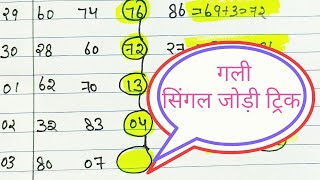 29 60 74 76 86 =69+3=72
30 28 60 72 27
01 62 70 13
02 32 83 04
03 80 07
गली
सिंगल जोड़ी ट्रिक